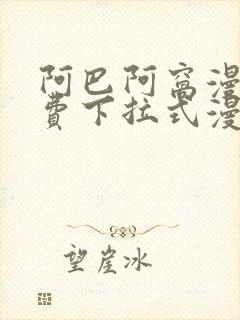 阿巴阿窩漫
費下拉式漫
望崖冰